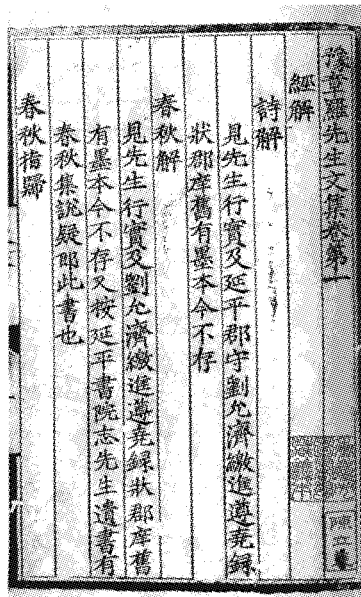 豫章羅先生文集卷第一
經解
詩解
見先生行實及延平郡守劉允濟繳進遵堯録
狀郡庠舊有墨本今不存
春秋解
見先生行實及劉允濟繳進遵堯録狀郡庠舊
有墨本今不存又按延平書院志先生遺書有
春秋集說疑即此書也
春秋指歸